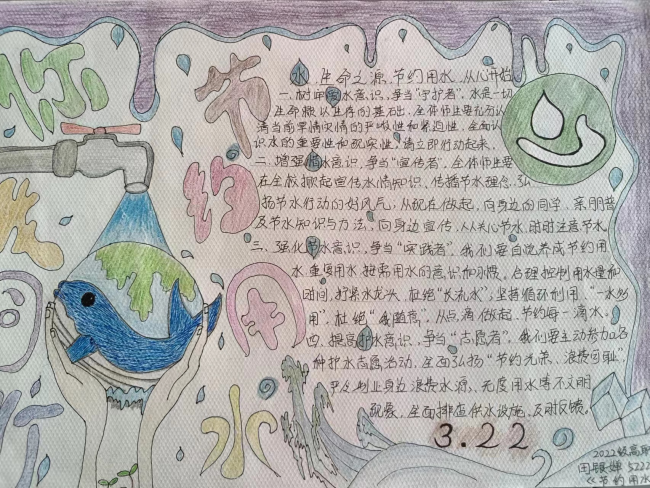 节
约
用
水
你
行
水,生命之源,节约用水,从心开始
一、树牢爱水意识,争当“守护者”,水是一切
生命赖以生存的基础,全体师生要充分认
清当前旱情汉情的严峻性和紧迫性,全面认
识水的重要性和现实性,请立即行动起来。
二、增强惜水意识,争当“宣传者”,全体师生要
在全校掀起宣传水情知识、传播节水理念、弘
扬节水行动的好风气,从现在做起,向身边的同学、亲朋普
及节水知识与方法,向身边宣传,人人关心节水,时时注意节水。
三、强化节水意识,争当“实践者”,我们要自觉养成节约用
水、重复用水、按需用水的意识和习惯,合理控制用水量和
时间,拧紧水龙头,杜绝“长流水”,坚持循环利用、“一水多
用”,杜绝“我随意”,从点滴做起,节约每一滴水。
四、提高护水意识,争当“志愿者”,我们要主动参加各
种护水志愿活动,全面弘扬“节约光荣、浪费可耻”,
制止身边浪费水源、无度用水等不文明
现象,全面排查供水设施,及时反馈。
3.22
2022级高
田银婵 5222
《节约用水